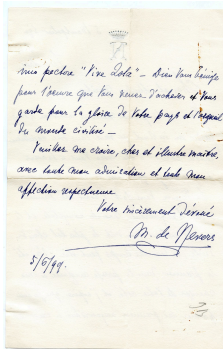 imo pectore "Vive Zola" – Dieu vous bénisse
pour l'œuvre que vous venez d'achever et vous
garde pour la gloire de votre pays et l'orgueil
du monde civilisé –
Veuillez me croire, cher et illustre maître,
avec toute mon admiration et toute mon
affection respectueuse
Votre sincèrement dévoué
M. de Nevers
5/6/99.